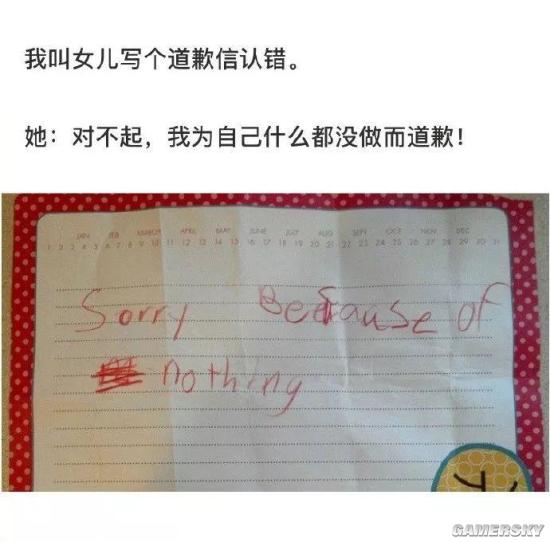 我叫女儿写个道歉信认错。
她：对不起，我为自己什么都没做而道歉！
JAN FEB MARCH APRIL MAY JUNE JULY AUG SEPT OCT NOV DEC
1 2 3 4 5 6 7 8 9 10 11 12 13 14 15 16 17 18 19 20 21 22 23 24 25 26 27 28 29 30 31
Sorry Because of
nothing
GAMERSKY